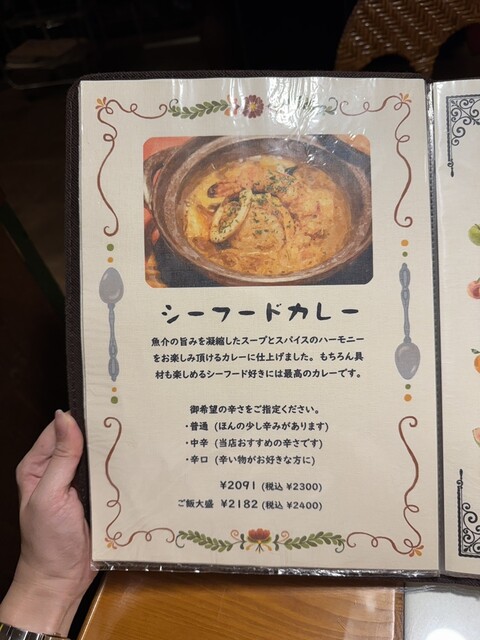 シーフードカレー
魚介の旨みを凝縮したスープとスパイスのハーモニー
をお楽しみ頂けるカレーに仕上げました。もちろん具
材も楽しめるシーフード好きには最高のカレーです。
御希望の辛さをご指定ください。
・普通 (ほんの少し辛みがあります)
・中辛 (当店おすすめの辛さです)
・辛口 (辛い物がお好きな方に)
¥2091 (税込 ¥2300)
ご飯大盛 ¥2182 (税込 ¥2400)